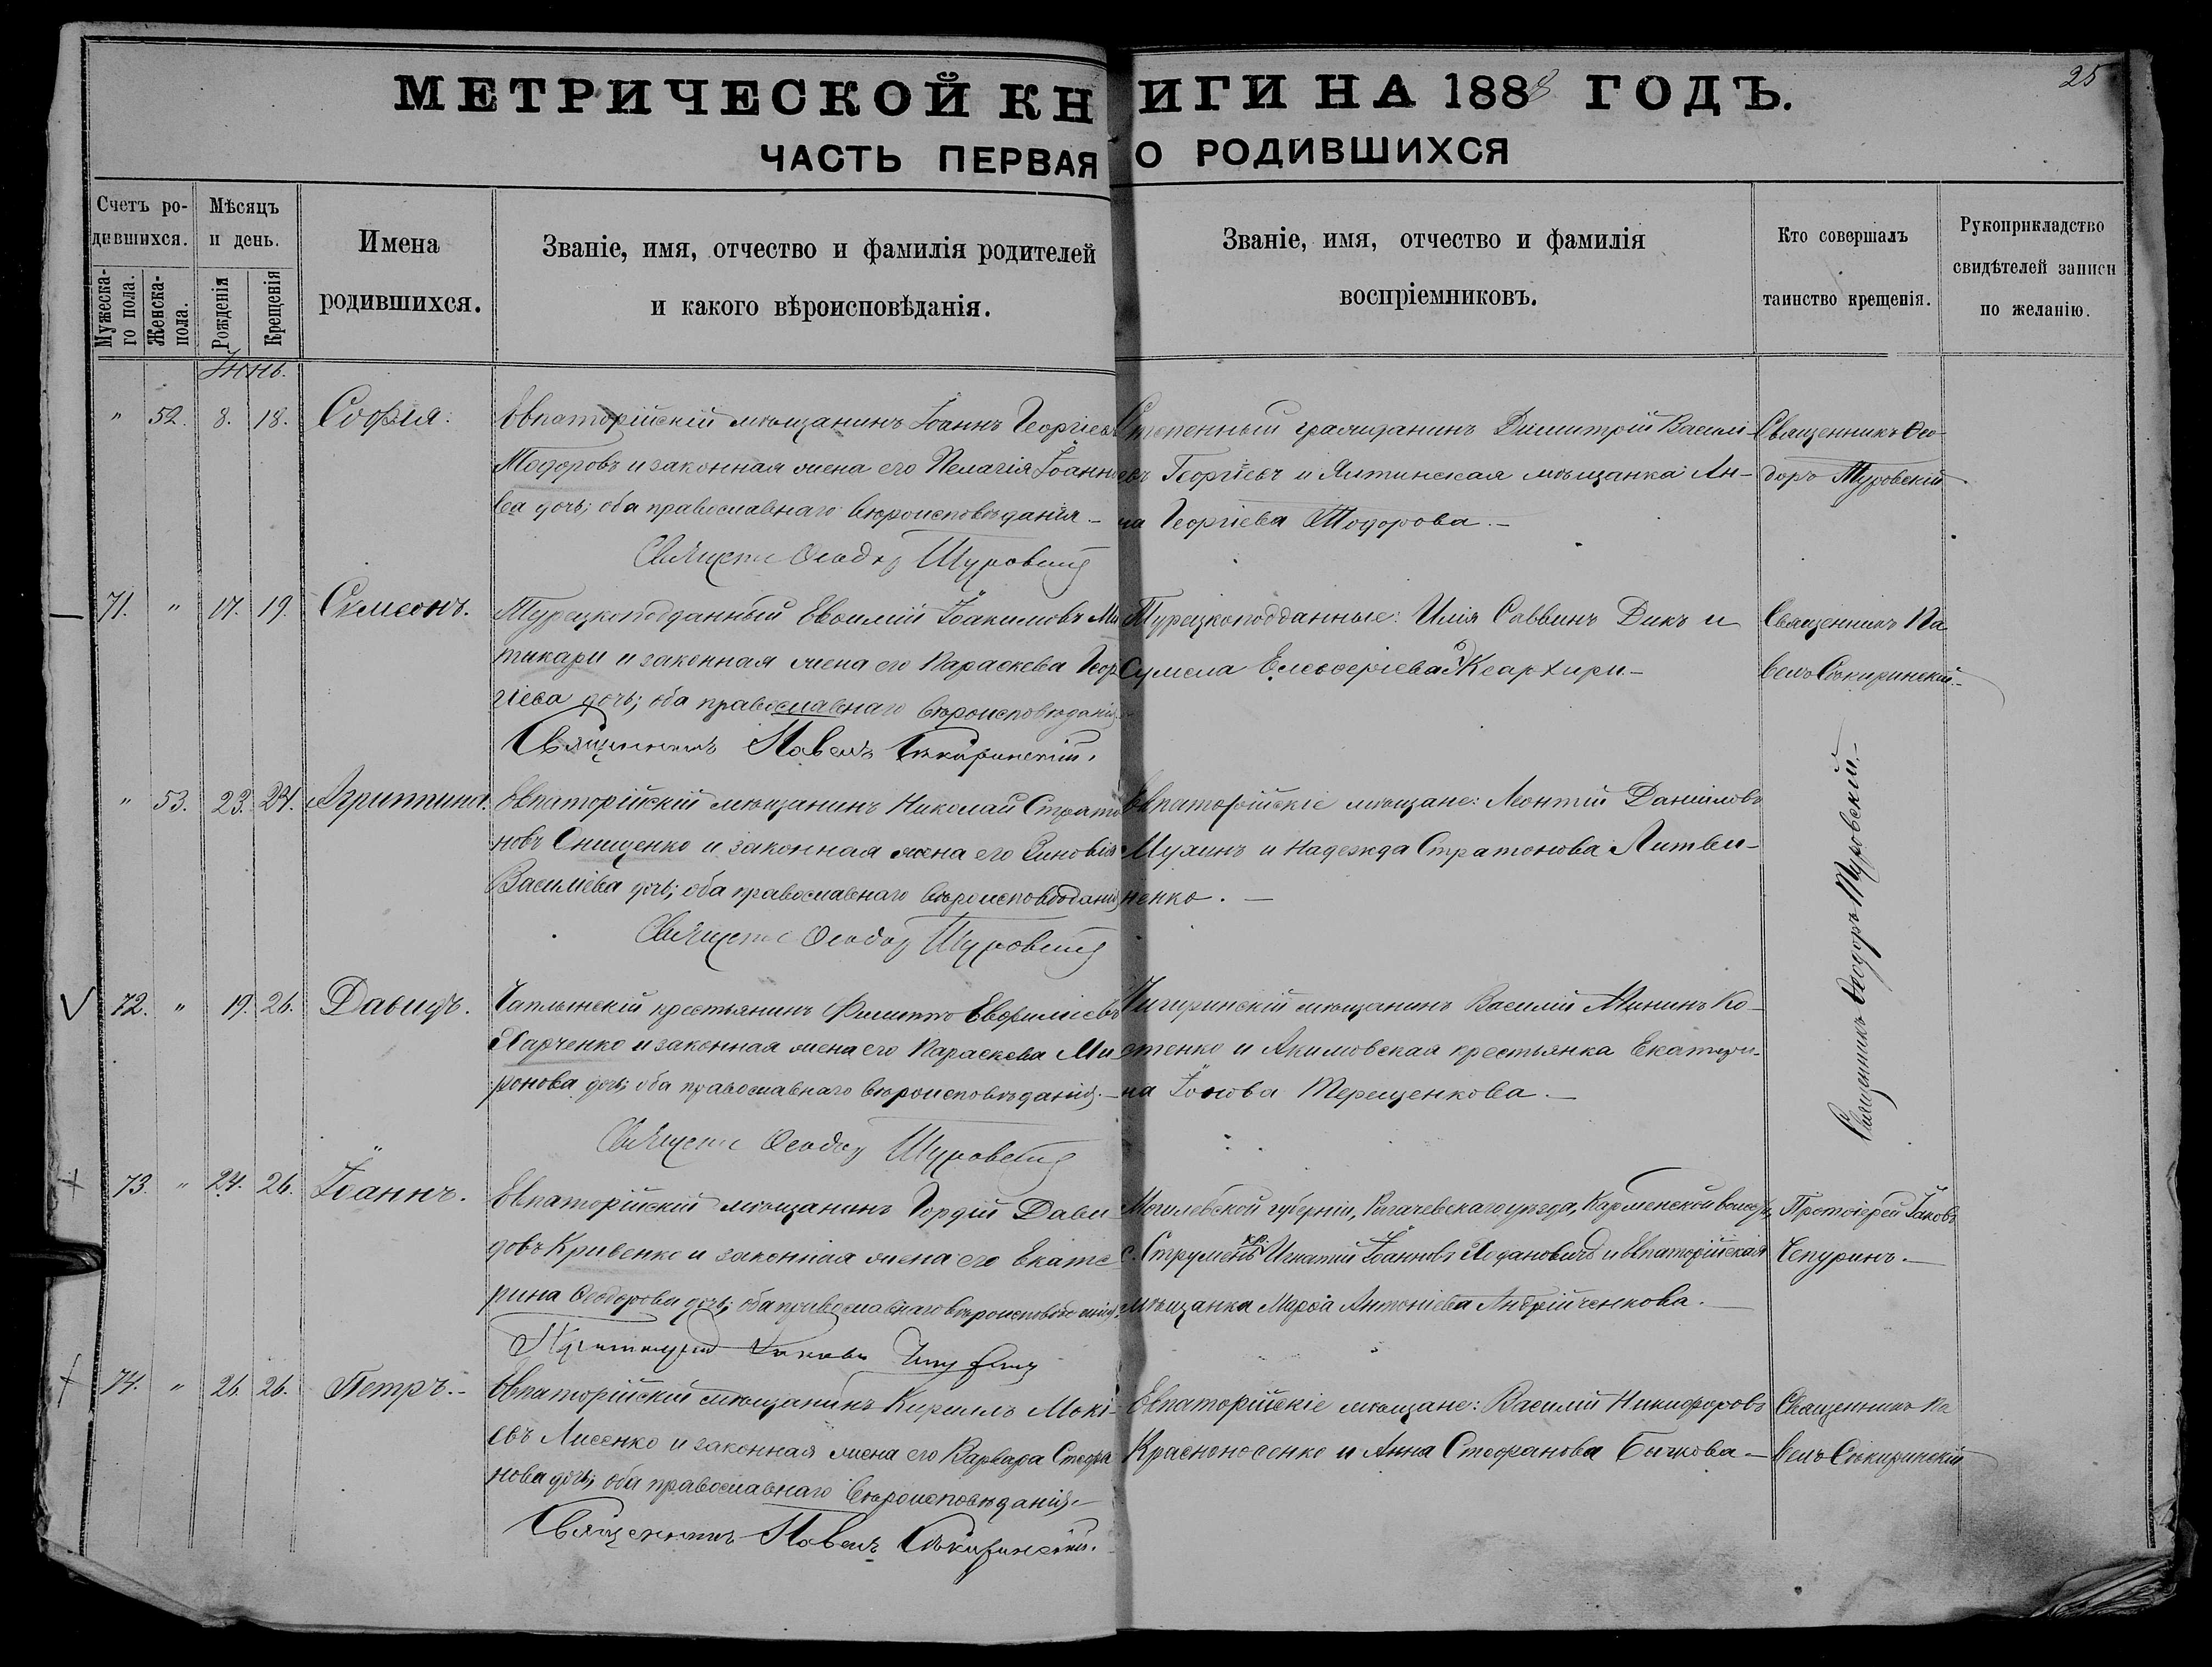 МЕТРИЧЕСКОЙ КНИГИ НА 1888 ГОДЪ.
25
ЧАСТЬ ПЕРВАЯ О РОДИВШИХСЯ
Счетъ родившихся.
Мужеска-го пола.
Женска- пола.
Мѣсяцъ и день.
Рожденія
Крещенія
Имена родившихся.
Званіе, имя, отчество и фамилія родителей
и какого вѣроисповѣданія.
Званіе, имя, отчество и фамилія
воспріемниковъ.
Кто совершалъ
таинство крещенія.
Рукоприкладство
свидѣтелей записи
по желанію.
Іюнь.
" 52. 8. 18. Софія.
Евпаторійскій мѣщанинъ Іоаннъ Георгіевъ
Тодоровъ и законная жена его Пелагія Іоанно
ва дочь; оба православнаго вѣроисповѣданія –
Священн Ѳеодор Туровскій
Степенный гражданинъ Димитрій Василі-
евъ Георгіевъ и Ялтинская мѣщанка Ан-
на Георгіева Тодорова. –
Священникъ Ѳео-
доръ Туровскій
71. " 17. 19. Сѵмеонъ.
Турецкоподданный Евѳимій Іоакимовъ Ми
тикари и законная жена его Параскева Геор
гіева дочь; оба православнаго вѣроисповѣданія
Священникъ Павелъ Сѣкиринскій.
Турецкоподданные: Илія Саввинъ Дикъ и
Сумела Елевѳеріева –
Священникъ Па
велъ Сѣкиринскій. –
" 53. 23. 24. Агриппина.
Евпаторійскій мѣщанинъ Николай Страто
новъ Онищенко и законная жена его Зиновія
Василіева дочь; оба православнаго вѣроисповѣданія
Священн Ѳеодор Туровскій
Евпаторійскіе мѣщане: Леонтій Даніиловъ
Мухинъ и Надежда Стратонова Литви-
ненко. –
Священникъ Ѳеодоръ Туровскій. –
72. " 19. 26. Давидъ.
Чаплынскій крестьянинъ Филиппъ Евфиміевъ
Харченко и законная жена его Параскева Ми
ронова дочь; оба православнаго вѣроисповѣданія. –
Священн Ѳеодор Туровскій
Чигиринскій мѣщанинъ Василій Мининъ Ко-
стенко и Акимовская крестьянка Екатери-
на Іонова Терещенкова. –
73. " 24. 26. Іоаннъ.
Евпаторійскій мѣщанинъ Гордій Дави-
довъ Кривенко и законная жена его Екате
рина Ѳеодорова дочь; оба православнаго вѣроисповѣданія.
Протоіерей Іаковъ Чепуринъ
Могилевской губерніи, Рогачевскаго уѣзда, Карпенской волости,
с. Струмень кр. Игнатій Іоанновъ и Евпаторійская
мѣщанка Марѳа Антоніева Андрійченкова. –
Протоіерей Іаковъ
Чепуринъ. –
74. " 26. 26. Петръ. –
Евпаторійскій мѣщанинъ Кириллъ Мокі-
евъ Лисенко и законная жена его Варвара Стефа
нова дочь; оба православнаго вѣроисповѣданія. –
Священникъ Павелъ Сѣкиринскій.
Евпаторійскіе мѣщане: Василій Никифоровъ
Красноносенко и Анна Стефанова Бычкова –
Священникъ Па
велъ Сѣкиринскій